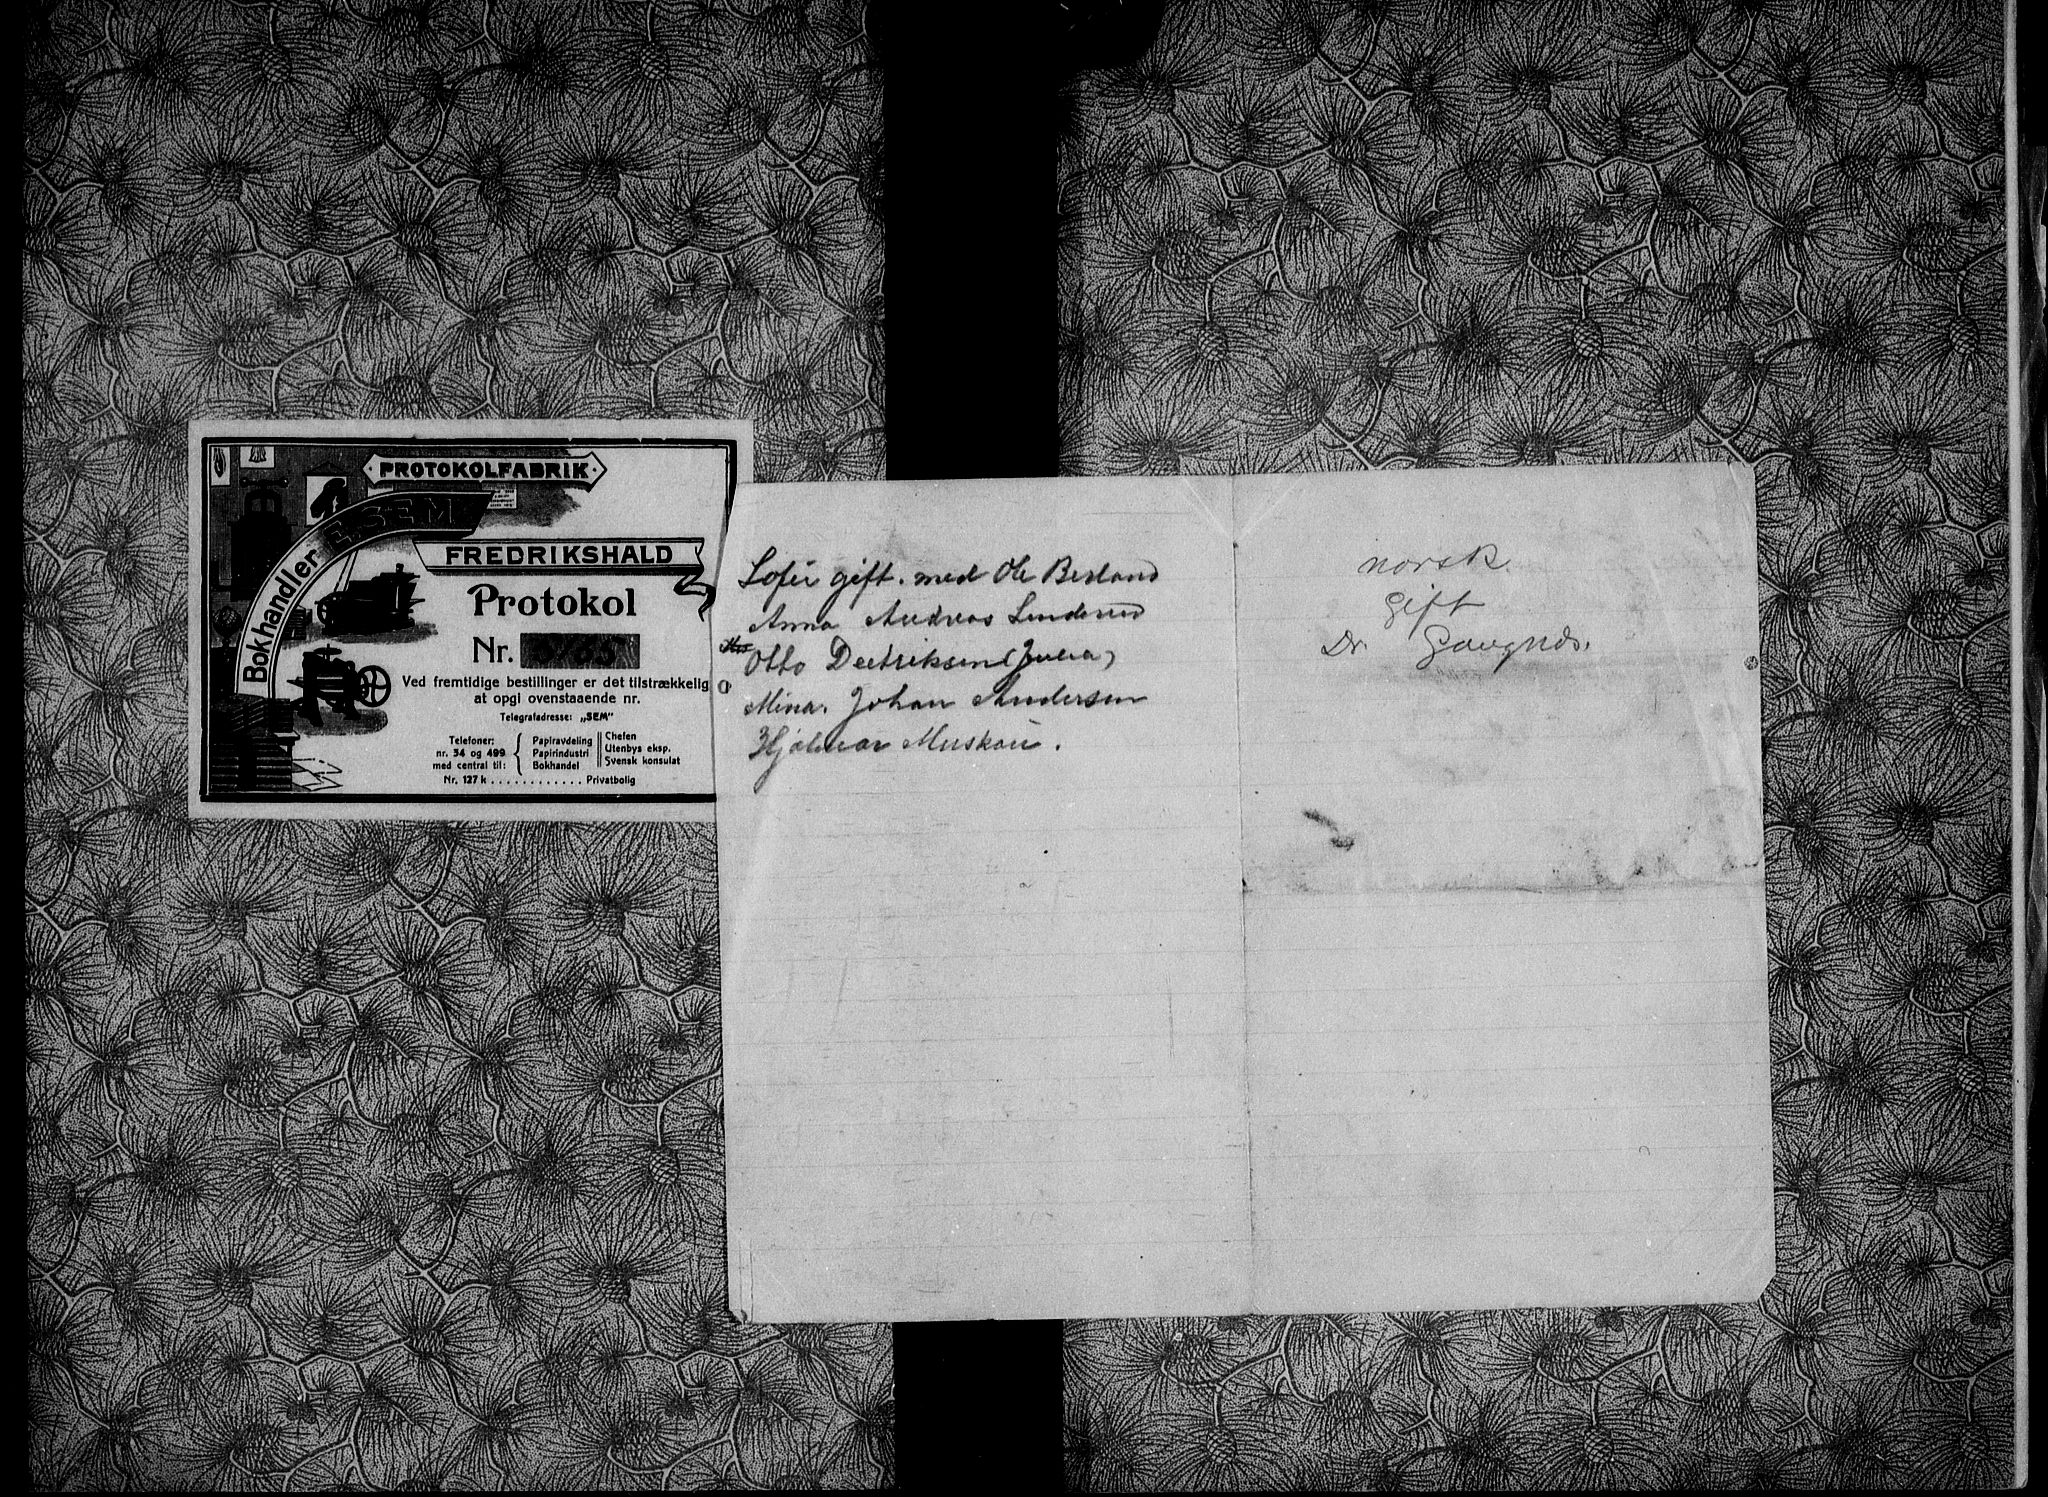 PROTOKOLFABRIK
Bokhandler E. SEM
FREDRIKSHALD
Protokol
Nr. 5765
Ved fremtidige bestillinger er det tilstrækkelig
at opgi ovenstaaende nr.
Telegrafadresse: „SEM"
Telefoner: nr. 34 og 499 med central til:
Papiravdeling
Papirindustri
Bokhandel
Chefen
Utenbys eksp.
Svensk konsulat
Nr. 127 k . . . . . . . . . . . . Privatbolig
Sofie gift. med Ole Berland
Anna Andreas Linderud
Otto Diedriksen (Julia)
Mina. Johan Andersen
Hjalmar Muskau.
norsk
gift
Dr